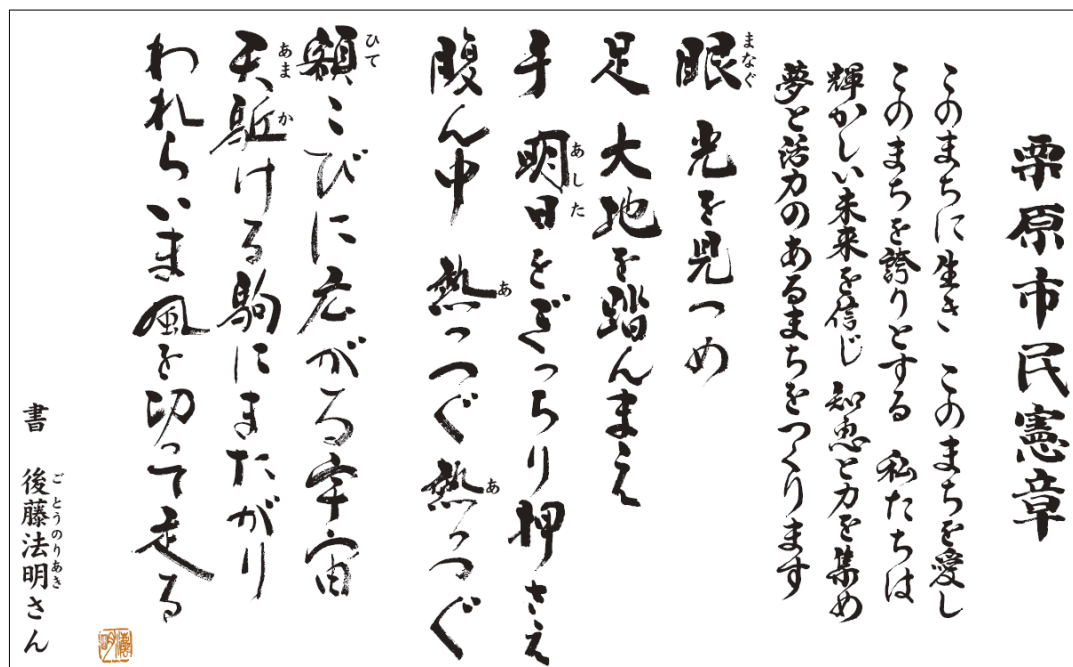 栗原市民憲章
このまちに生き このまちを愛し
このまちを誇りとする 私たちは
輝かしい未来を信じ 知恵と力を集め
夢と活力のあるまちをつくります
眼 光を見つめ
まなぐ
足 大地を踏んまえ
手 明日をぎっちり押さえ
あした
腹ん中 熱っつぐ熱っつぐ
あ あ
額こびに広がる宇宙
ひて
天駈ける駒にまたがり
あまか
われらいま風を切って走る
書 後藤法明さん
ごとうのりあき